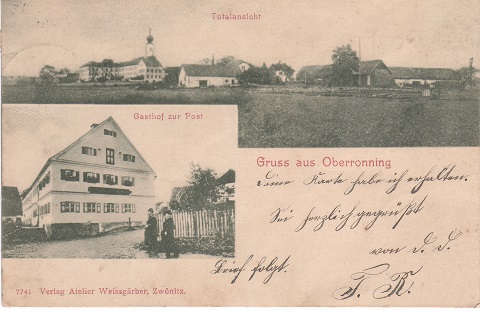 Totalansicht
Gasthof zur Post
Gruss aus Oberronning
Deine Karte habe ich erhalten.
Sei herzlich gegrüßt
von d. d.
F. K.
Brief folgt.
7741 Verlag Atelier Weissgärber, Zwönitz.